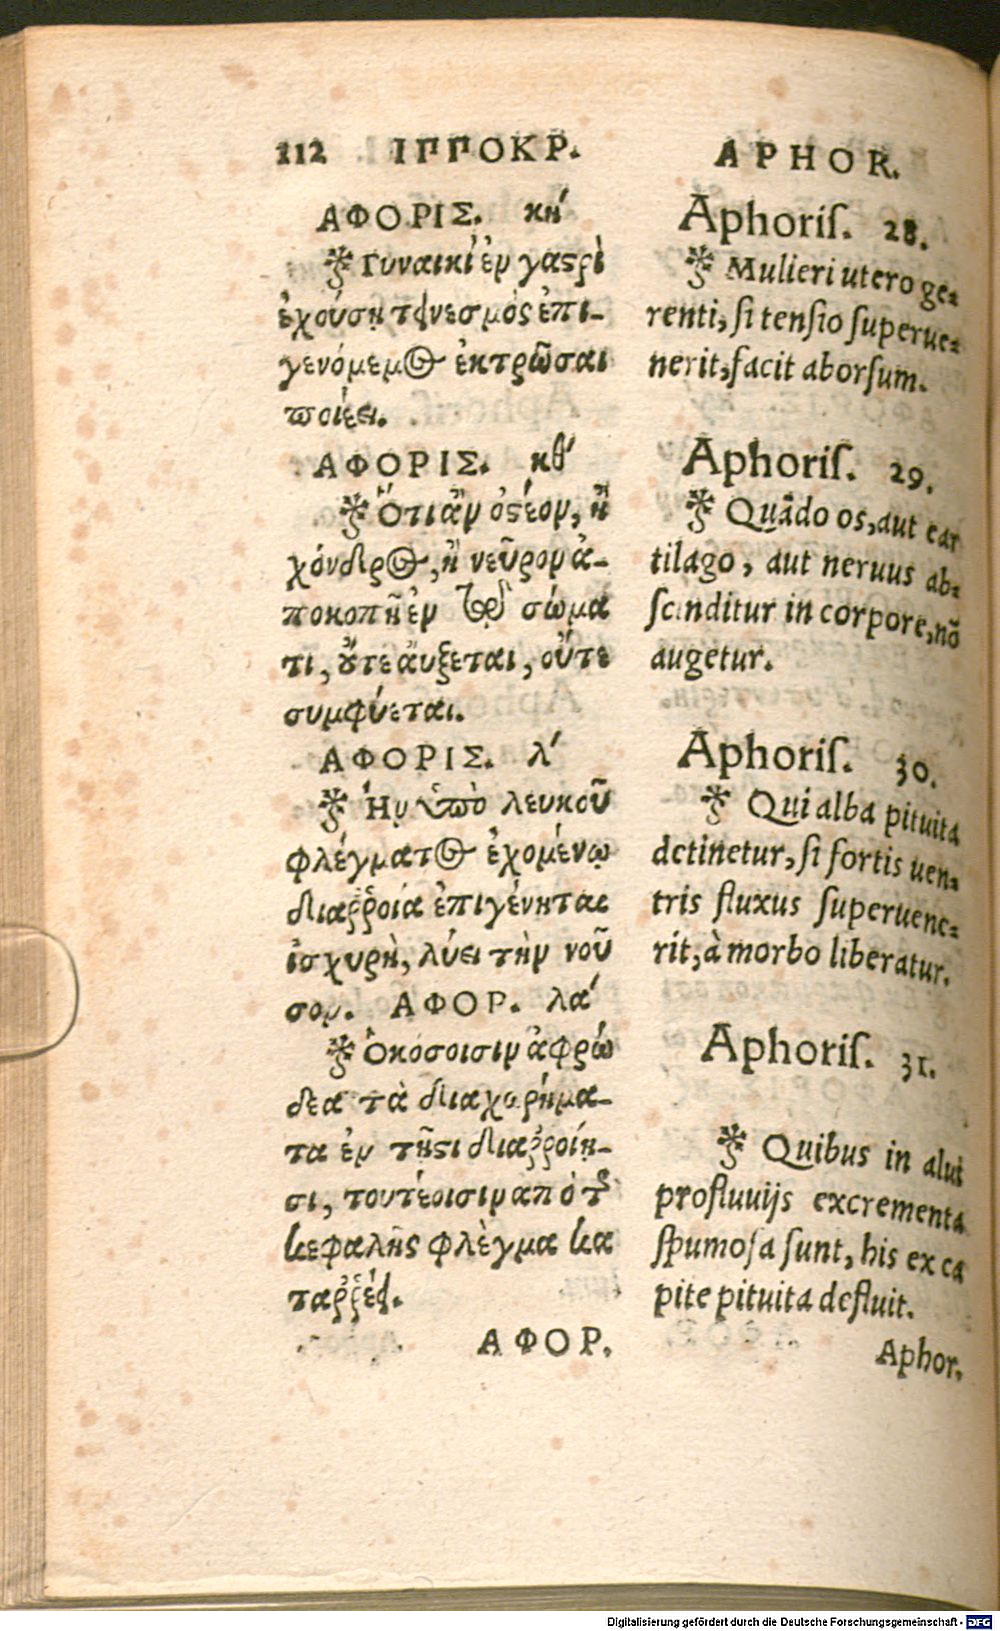 112 ΙΠΠΟΚΡ.
ΑΦΟΡΙΣ. κή
Γυναικὶ ἐν γαστρὶ
ἐχούσῃ τεινεσμὸς ἐπι-
γενόμενος ἐκτρῶσαι
ποιέει.
ΑΦΟΡΙΣ. κθ´
Ὅτι ἂν ὀστέον, ἢ
χόνδρος, ἢ νεῦρον ἀ-
ποκοπῇ ἐν τῷ σώμα
τι, ὄυτε ἀυξεται, οὔτε
συμφύεται.
ΑΦΟΡΙΣ. λ´
Ἢν ὑπὸ λευκοῦ
φλέγματος ἐχομένῳ
διαῤῥοία ἐπιγένηται
ἰσχυρὴ, λύει τὴν νοῦ
σον. ΑΦΟΡ. λα´
Ὁκοσοισιν ἀφρώ
δεα τὰ διαχωρήμα-
τα ἐν τῇσι διαῤῥοίῃ-
σι, τουτέοισιν ἀπὸ τῆς
κεφαλῆς φλέγμα κα
ταῤῥέει.
ΑΦΟΡ.
APHOR.
Aphoriſ. 28.
Mulieri utero ge-
renti, ſi tenſio ſuperue-
nerit, facit aborſum.
Aphoriſ. 29.
Quãdo os, aut car
tilago, aut neruus ab-
ſcinditur in corpore, nõ
augetur.
Aphoriſ. 30.
Qui alba pituita
detinetur, ſi fortis uen-
tris fluxus ſuperuene-
rit, à morbo liberatur.
Aphoriſ. 31.
Quibus in alui
profluuijs excrementa
ſpumoſa ſunt, his ex ca
pite pituita defluit.
Aphor.
Digitalisierung gefördert durch die Deutsche Forschungsgemeinschaft - DFG